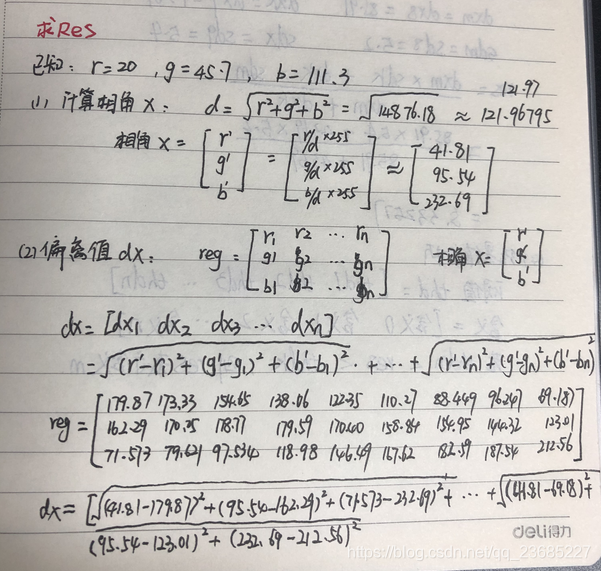 求Res
已知: r=20 , g=45.7 b=111.3
(1) 计算相角X: d=√r²+g²+b² = √14876.18 ≈ 121.96795
121.97
相角X= [r' g' b'] = [r/d×255 g/d×255 b/d×255] ≈ [41.81 95.54 232.69]
(2) 偏离值dx: reg= [r1 r2 ... rn
g1 g2 ... gn
b1 b2 ... bn] 相角X= [r' g' b']
dx=[dx1 dx2 dx3 ... dxn]
=√(r'-r1)²+(g'-g1)²+(b'-b1)² . + ... + √(r'-rn)²+(g'-gn)²+(b'-bn)²
reg= [179.87 173.33 154.65 138.06 122.35 110.27 88.449 96.247 69.181
162.29 170.25 178.77 179.59 170.60 158.84 154.95 144.32 123.01
71.573 79.621 97.534 118.98 146.49 167.62 182.59 187.54 212.56]
dx= [√(41.81-179.87)²+(95.54-162.29)²+(71.573-232.69)² + ... + √(41.81-69.18)²+
(95.54-123.01)²+(232.69-212.56)²
deli得力
https://blog.csdn.net/qq_23685227